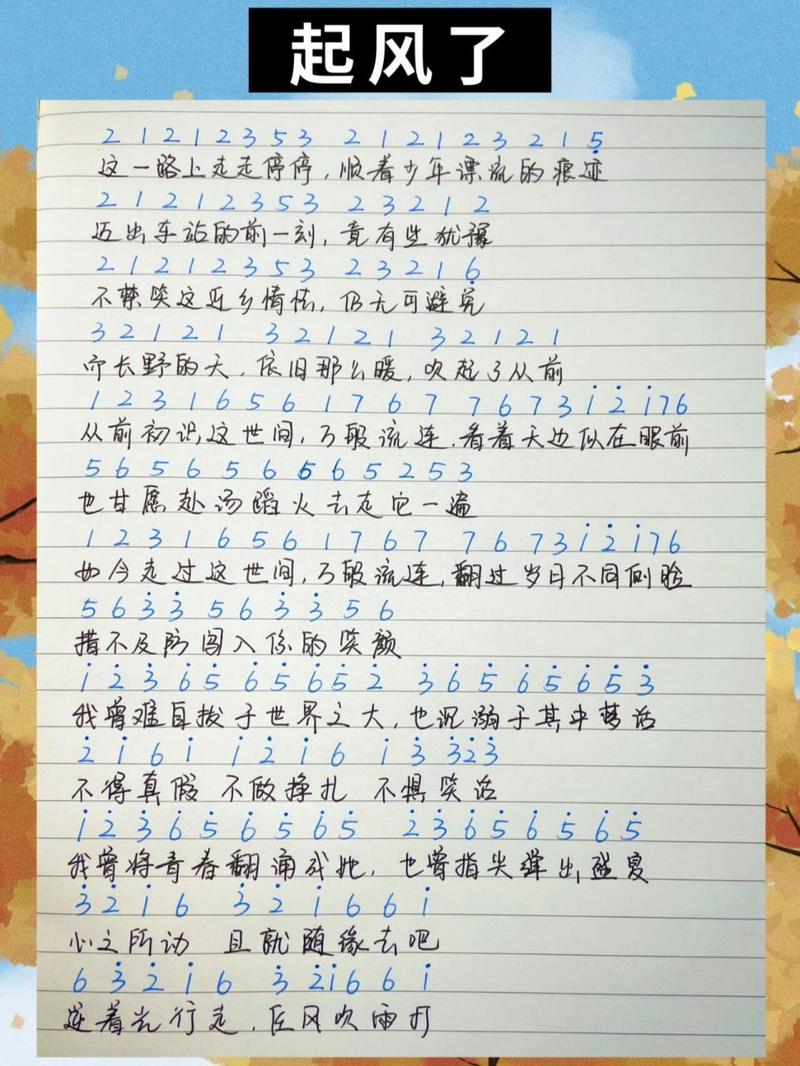 起风了
2 1 2 1 2 3 5 3 2 1 2 1 2 3 2 1 5̣
这一路上走走停停,顺着少年漂流的痕迹
2 1 2 1 2 3 5 3 2 3 2 1 2
迈出车站的前一刻,竟有些犹豫
2 1 2 1 2 3 5 3 2 3 2 1 6̣
不禁笑这近乡情怯,仍无可避免
3 2 1 2 1 3 2 1 2 1 3 2 1 2 1
而长野的天,依旧那么暖,吹起了从前
1 2 3 1 6 5 6 1 7 6 7 7 6 7 3 i 2̇ i 7 6
从前初识这世间,万般流连.看着天边似在眼前
5 6 5 6 5 6 5 6 5 2 5 3
也甘愿赴汤蹈火去走它一遍
1 2 3 1 6 5 6 1 7 6 7 7 6 7 3 i 2̇ i 7 6
如今走过这世间,万般流连,翻过岁月不同侧脸
5 6 3̇ 3̇ 5 6 3̇ 3̇ 5 6
措不及防闯入你的笑颜
i 2̇ 3̇ 6̇ 5̇ 6̇ 5̇ 6̇ 5̇ 2̇ 3̇ 6̇ 5̇ 6̇ 5̇ 6̇ 5̇ 3̇
我曾难自拔于世界之大,也沉溺于其中梦话
2̇ i 6 i i 2̇ i 6 i 3̇ 3̇2̇3̇
不得真假 不做挣扎 不惧笑话
i 2̇ 3̇ 6̇ 5̇ 6̇ 5̇ 6̇ 5̇ 2̇ 3̇ 6̇ 5̇ 6̇ 5̇ 6̇ 5̇
我曾将青春翻涌成她,也曾指尖弹出盛夏
3̇ 2̇ i 6 3̇ 2̇ i 6 6 i
心之所动 且就随缘去吧
6 3̇ 2̇ i 6 3̇ 2̇i 6 6 i
逆着光行走.任风吹雨打